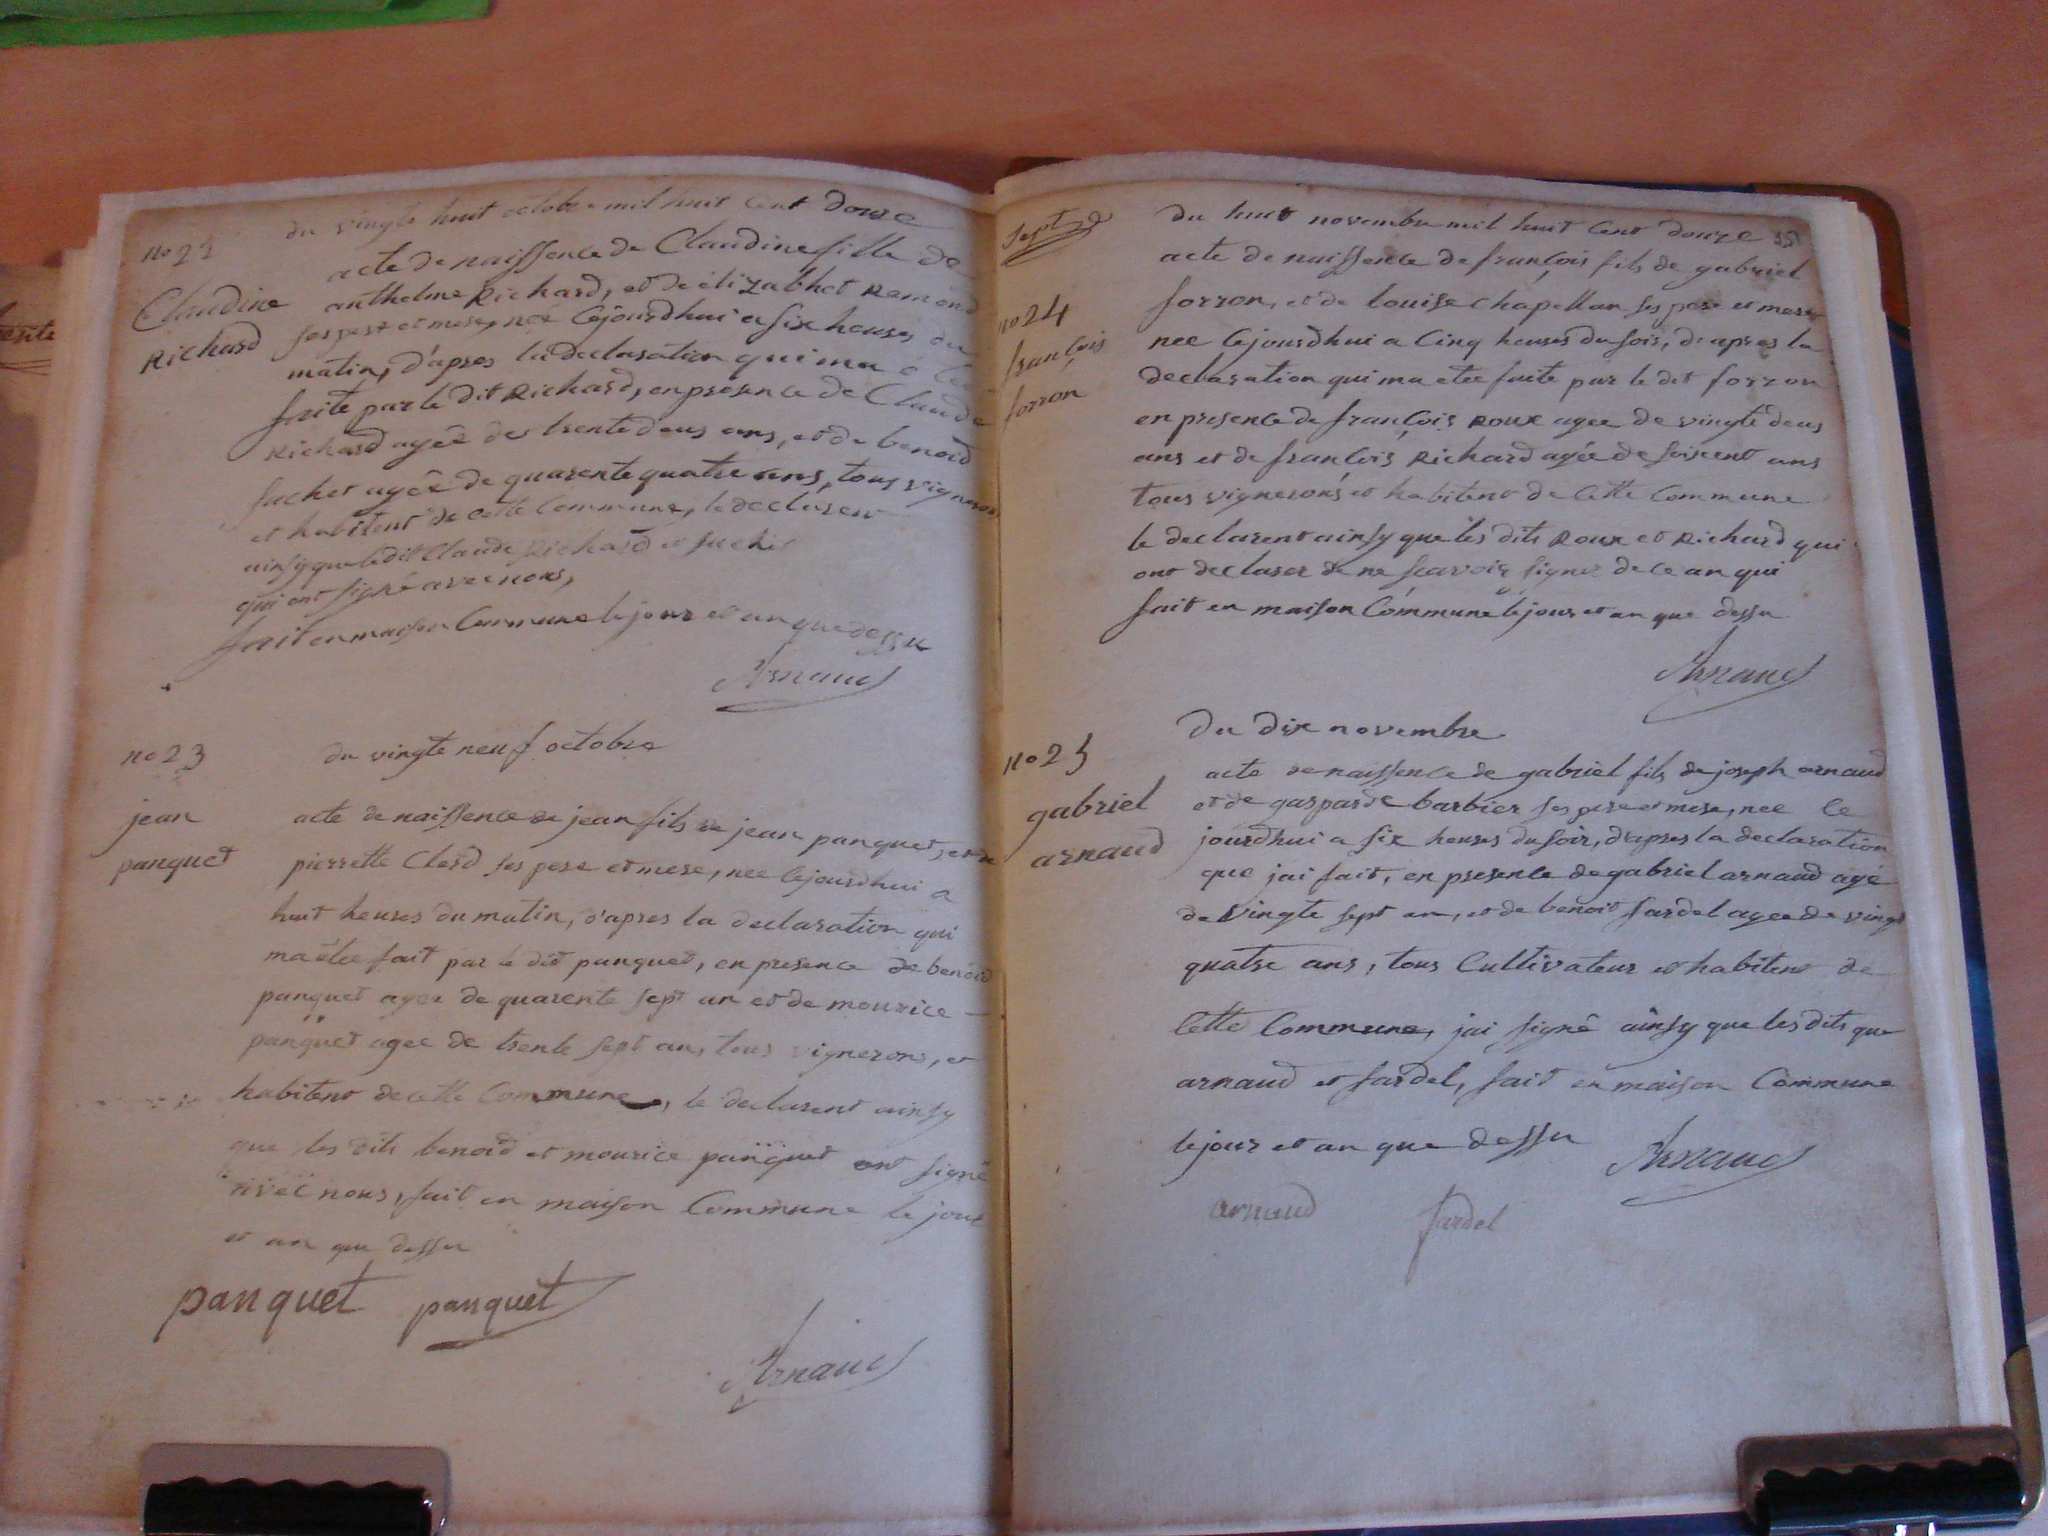 du vingte huit octobre mil huit cent douze
no 22
acte de naissence de Claudine fille de
Claudine
Richard
anthelme Richard, et de élizabhet Remond
ses pere et mere, nee cejourdhui a six heures du
matin, d'apres la declaration qui ma é
faite par le dit Richard, en présence de Claude
Richard agéé de trente deus ans, et de benoid
suchet agéé de quarente quatre ans, tous vigneron
et habitent de cette Commune, le declarent
ainsy que le dit Claude Richard et suchet
qui ont signé avec nous,
fait en maison Commune le jour et an que dessu
Arnaud
no 23
du vingte neuf octobre
jean
panquet
acte de naissence de jean fils de jean panquet, et de
pierrette Clerd ses pere et mere, nee cejourdhui a
huit heures du matin, d'apres la declaration qui
ma étee fait par le dit panquet, en presence de benoid
panquet agee de quarente sept an et de mourice
panquet agee de trente sept an, tous vignerons, et
habitent de cette Commune, le declarent ainsy
que les dits benoid et mourice panquet ont signé
avec nous, fait en maison Commune le jour
et an que dessu
panquet panquet
Arnaud
Sept
du huit novembre mil huit cent douze
no 24
françois
forron
acte de naissence de françois fils de gabriel
forron, et de louise Chapellan ses pere et mere
nee cejourdhui a Cinq heures du soir, d'apres la
declaration qui ma etee faite par le dit forron
en presence de françois Roux agee de vingte deus
ans et de françois Richard agéé de soixent ans
tous vignerons et habitent de cette Commune
le declarent ainsy que les dits Roux et Richard qui
ont declarer de ne scavoir signer de ce an qui
fait en maison Commune le jour et an que dessu
Arnaud
du dix novembre
no 25
gabriel
arnaud
acte de naissence de gabriel fils de joseph arnaud
et de gasparde barbier ses pere et mere, nee ce
jourdhui a six heures du soir, d'apres la declaration
que jai fait, en presence de gabriel arnaud agé
de vingte sept an, et de benoit fardel agee de vingt
quatre ans, tous Cultivateur et habitent de
cette Commune, jai signé ainsy que les dits que
arnaud et fardel, fait en maison Commune
le jour et an que dessu
Arnaud
arnaud fardel